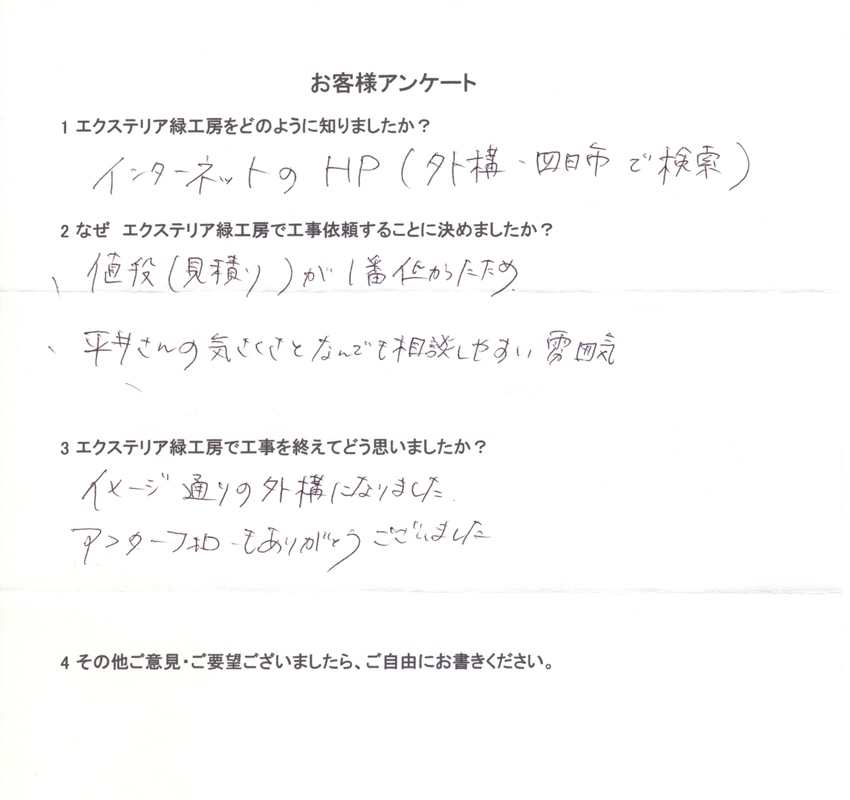 お客様アンケート
1 エクステリア緑工房をどのように知りましたか？
インターネットの HP (外構・四日市 で検索)
2 なぜ エクステリア緑工房で工事依頼することに決めましたか？
、値段(見積り)が1番低かったため
、平井さんの気さくさとなんでも相談しやすい雰囲気
3 エクステリア緑工房で工事を終えてどう思いましたか？
イメージ通りの外構になりました
アフターフォローもありがとうございました
4 その他ご意見・ご要望ございましたら、ご自由にお書きください。